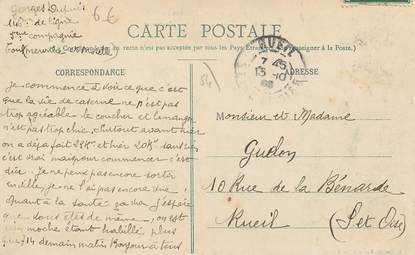 Georges Dupuis
de ligne
5me compagnie
66
CARTE POSTALE
(La Correspondance au recto n'est pas acceptée par tous les Pays Etrangers. (Se renseigner à la Poste.)
RUEIL
7 45
13 -10
CORRESPONDANCE
ADRESSE
Je commence à voir ce que c'est
que la vie de caserne ce n'est pas
trop agréable. le coucher et le manger
n'est pas trop chic, surtout avant hier
on a déjà fait 22K et hier 20K sans rien
c'est vrai mais pour commencer c'est
dur. Je ne peux pas encore sortir
en ville, je ne l'ai pas encore vue.
Quant à la santé ça va j'espère
que vous êtes de même, on est
moche étant habillé plus
que 714 demain matin Bonjour à tous
Monsieur et Madame
Gudon
10 Rue de la Bénarde
Rueil
(S et Oise)